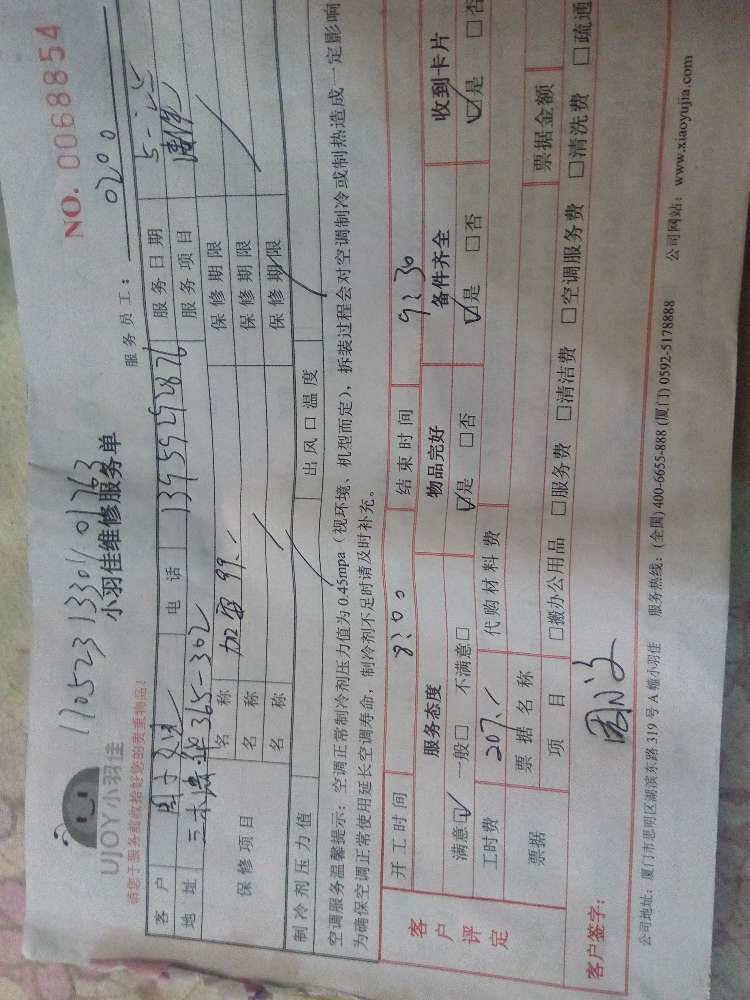 NO. 0068854
1705231330401763
UJOY小羽佳
小羽佳维修服务单
请您于服务前收拾好您的贵重物品!
服务员工: 0200
客户 电话 13959292876 服务日期 5-25
地址 365-302 服务项目
保修项目
名称 加雪 99.- 保修期限
名称 保修期限
名称 保修期限
制冷剂压力值 出风口温度
空调服务温馨提示:空调正常制冷剂压力值为0.45mpa(视环境、机型而定),拆装过程会对空调制冷或制热造成一定影响
为确保空调正常使用延长空调寿命,制冷剂不足时请及时补充。
客户评定
开工时间 8:00 结束时间 9:30
服务态度 物品完好 备件齐全 收到卡片
满意☑ 一般□ 不满意□ ☑是 □否 ☑是 □否 ☑是 □否
工时费 207.- 代购材料费
票据 票据名称 票据金额
项目 □搬办公用品 □服务费 □清洁费 □空调服务费 □清洗费 □疏通
客户签字:
公司地址:厦门市思明区湖滨东路319号A幢小羽佳 服务热线:(全国)400-6655-888 (厦门)0592-5178888 公司网站:www.xiaoyujia.com